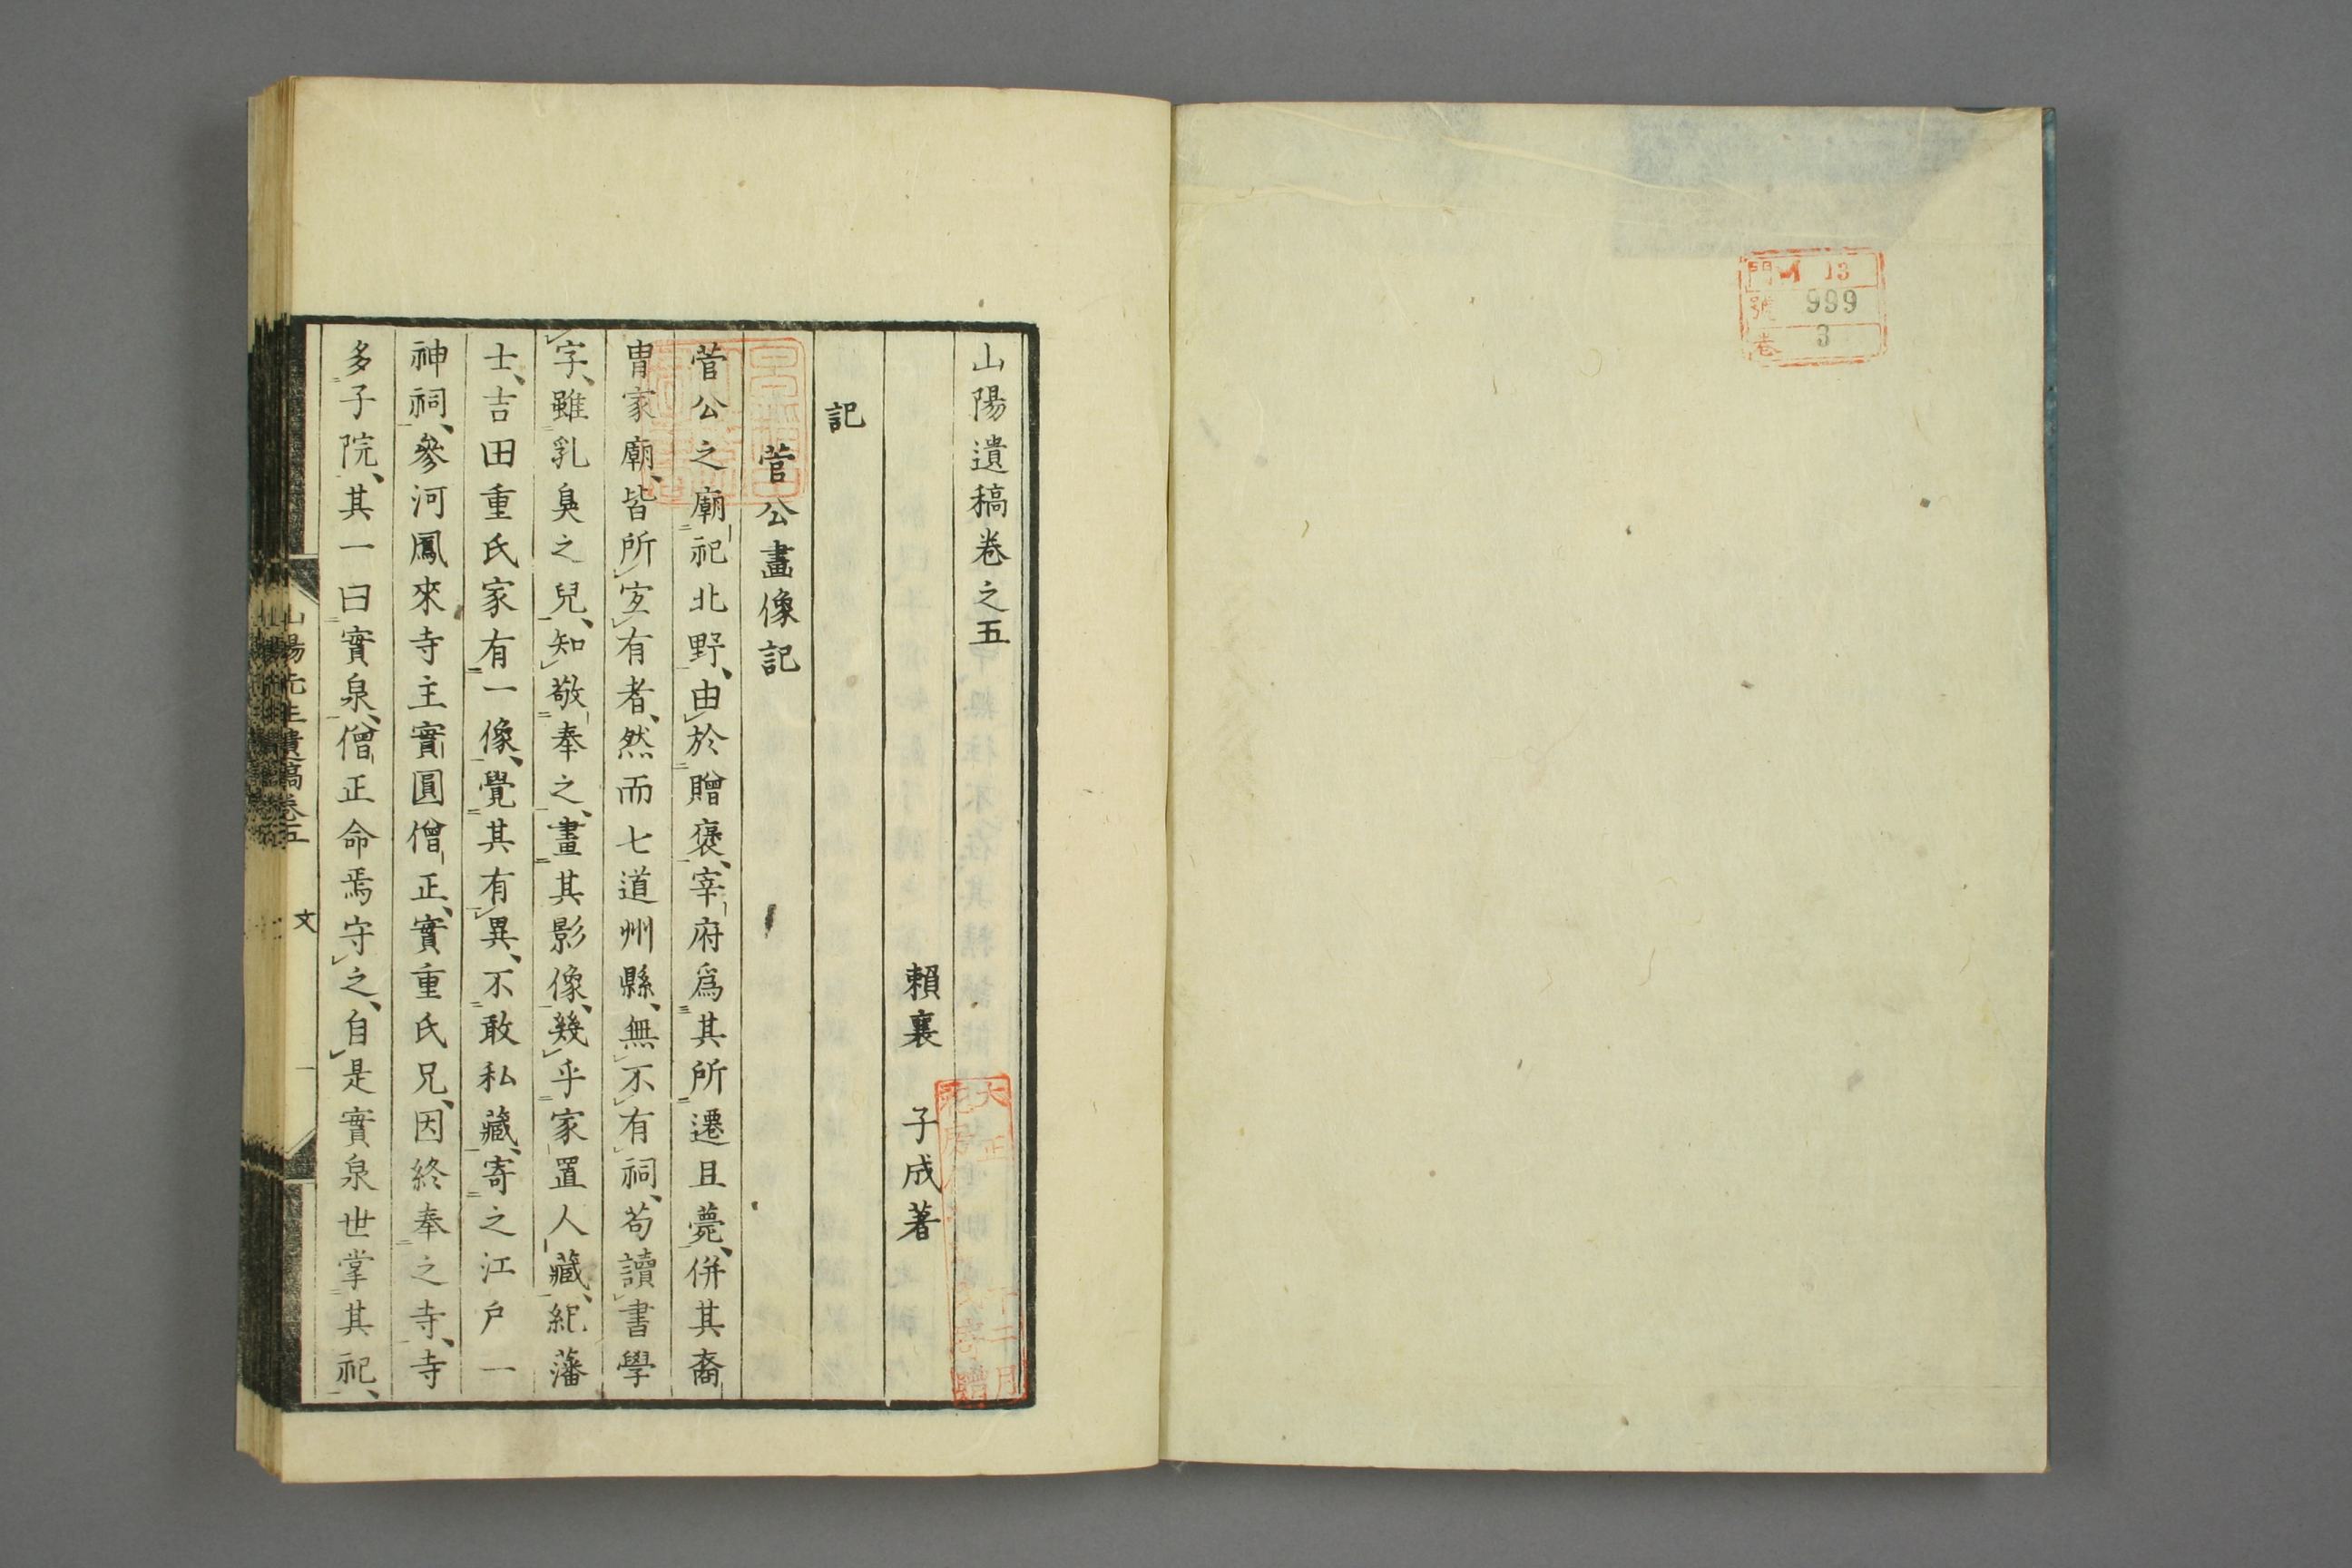 門 13
號 999
卷 3
山陽遺稿卷之五
賴襄 子成著
記
菅公畫像記
菅公之廟祀北野、由於贈褒、宰府爲其所遷且薨、併其裔
胄家廟、皆所宜有者、然而七道州縣、無不有祠、苟讀書學
字、雖乳臭之兒、知敬奉之、畫其影像、幾乎家置人藏、紀藩
士、吉田重氏家有一像、覺其有異、不敢私藏、寄之江戶一
神祠、參河鳳來寺主實圓僧正、實重氏兄、因終奉之寺、寺
多子院、其一曰實泉、僧正命焉守之、自是實泉世掌其祀、
山陽先生遺稿卷五 文 一